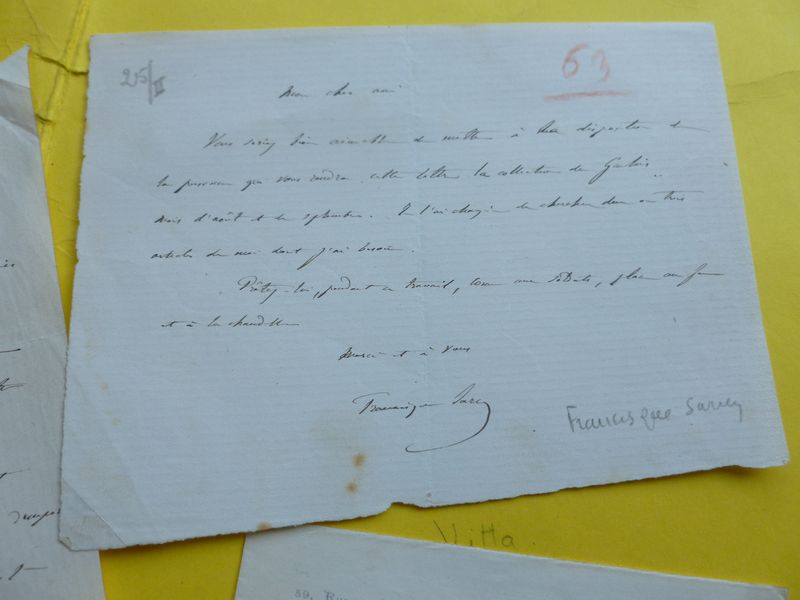 25/II
63
Mon cher ami
Vous seriez bien aimable de mettre à la disposition de
la personne qui vous rendra cette lettre la collection du Gaulois
mois d'août et de septembre. Je l'ai chargée de chercher deux ou trois
articles de moi dont j'ai besoin.
Prêtez-lui, pendant ce travail, comme aux soldats, place au feu
et à la chandelle
Merci et à vous
Francisque Sarcey
Francisque Sarcey
Vitta.
89, Rue